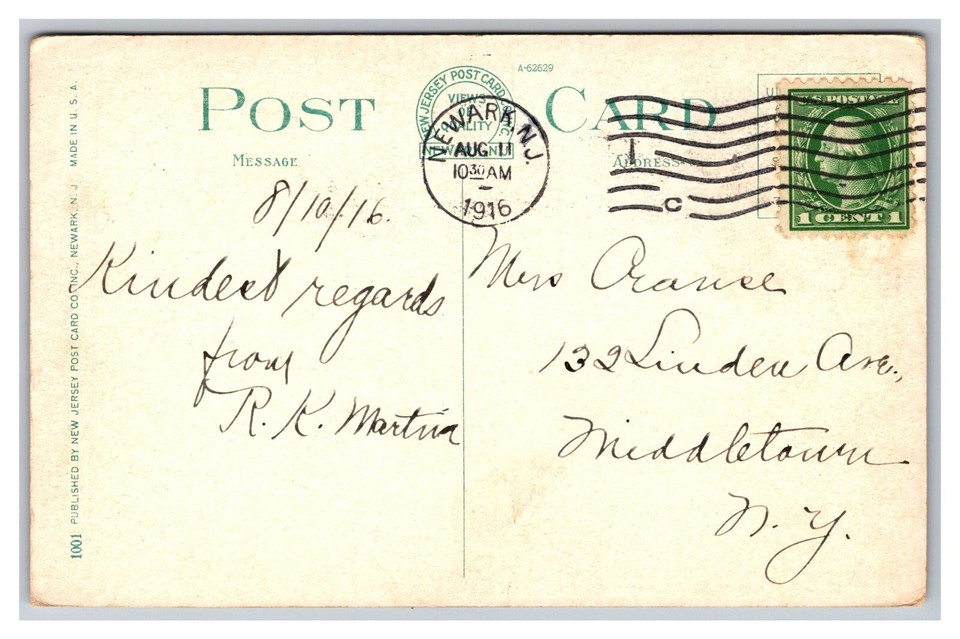 A-62629
POST CARD
NEW JERSEY POST CARD
VIEWS
NEWARK, N.J.
AUG 11
10 30 AM
1916
MESSAGE
ADDRESS
U.S. POSTAGE
1 CENT 1
1
C
8/10/16.
Kindest regards
from
R. K. Martin
Mrs
132 Linden Ave.,
Middletown
N. Y.
1001 PUBLISHED BY NEW JERSEY POST CARD CO. INC., NEWARK, N. J. MADE IN U. S. A.